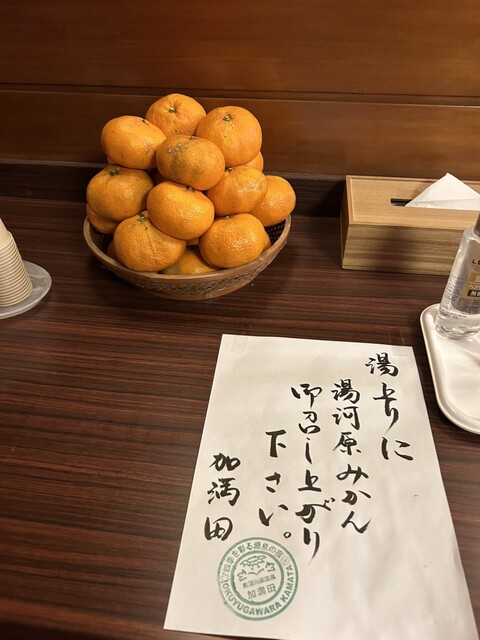 湯上りに
湯河原みかん
御召し上がり
下さい。
加満田
四季を彩る源泉の宿
奥湯河原温泉
加満田
OKUYUGAWARA KAMATA